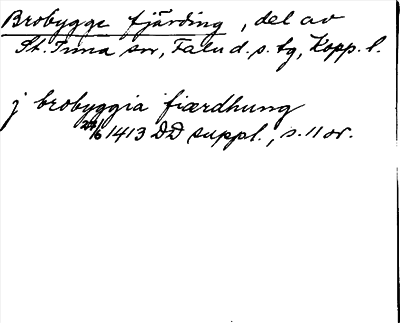 Brobygge fjärding, del av
St. Tuna sn, Falu d. s. tg, Kopp. l.
j brobyggia fiærdhung
1413 DD suppl., s. 11 or.